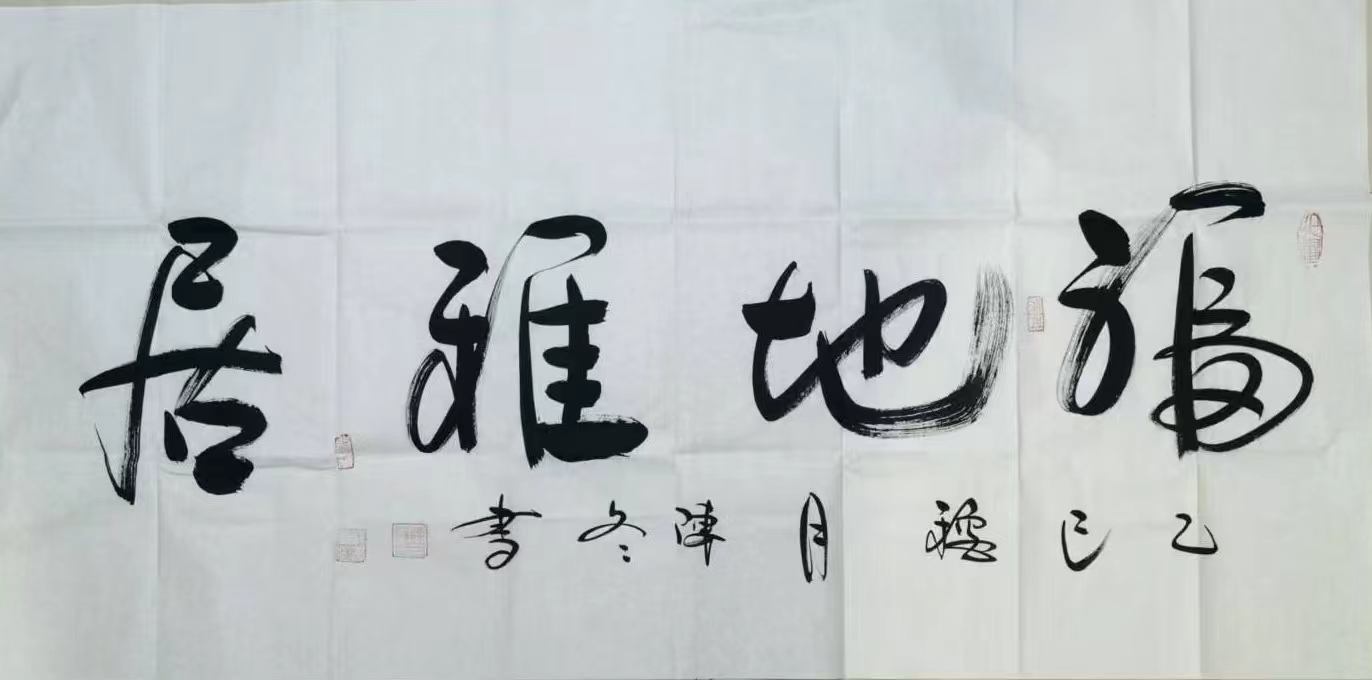 福地雅居
乙巳穐月陳冬書